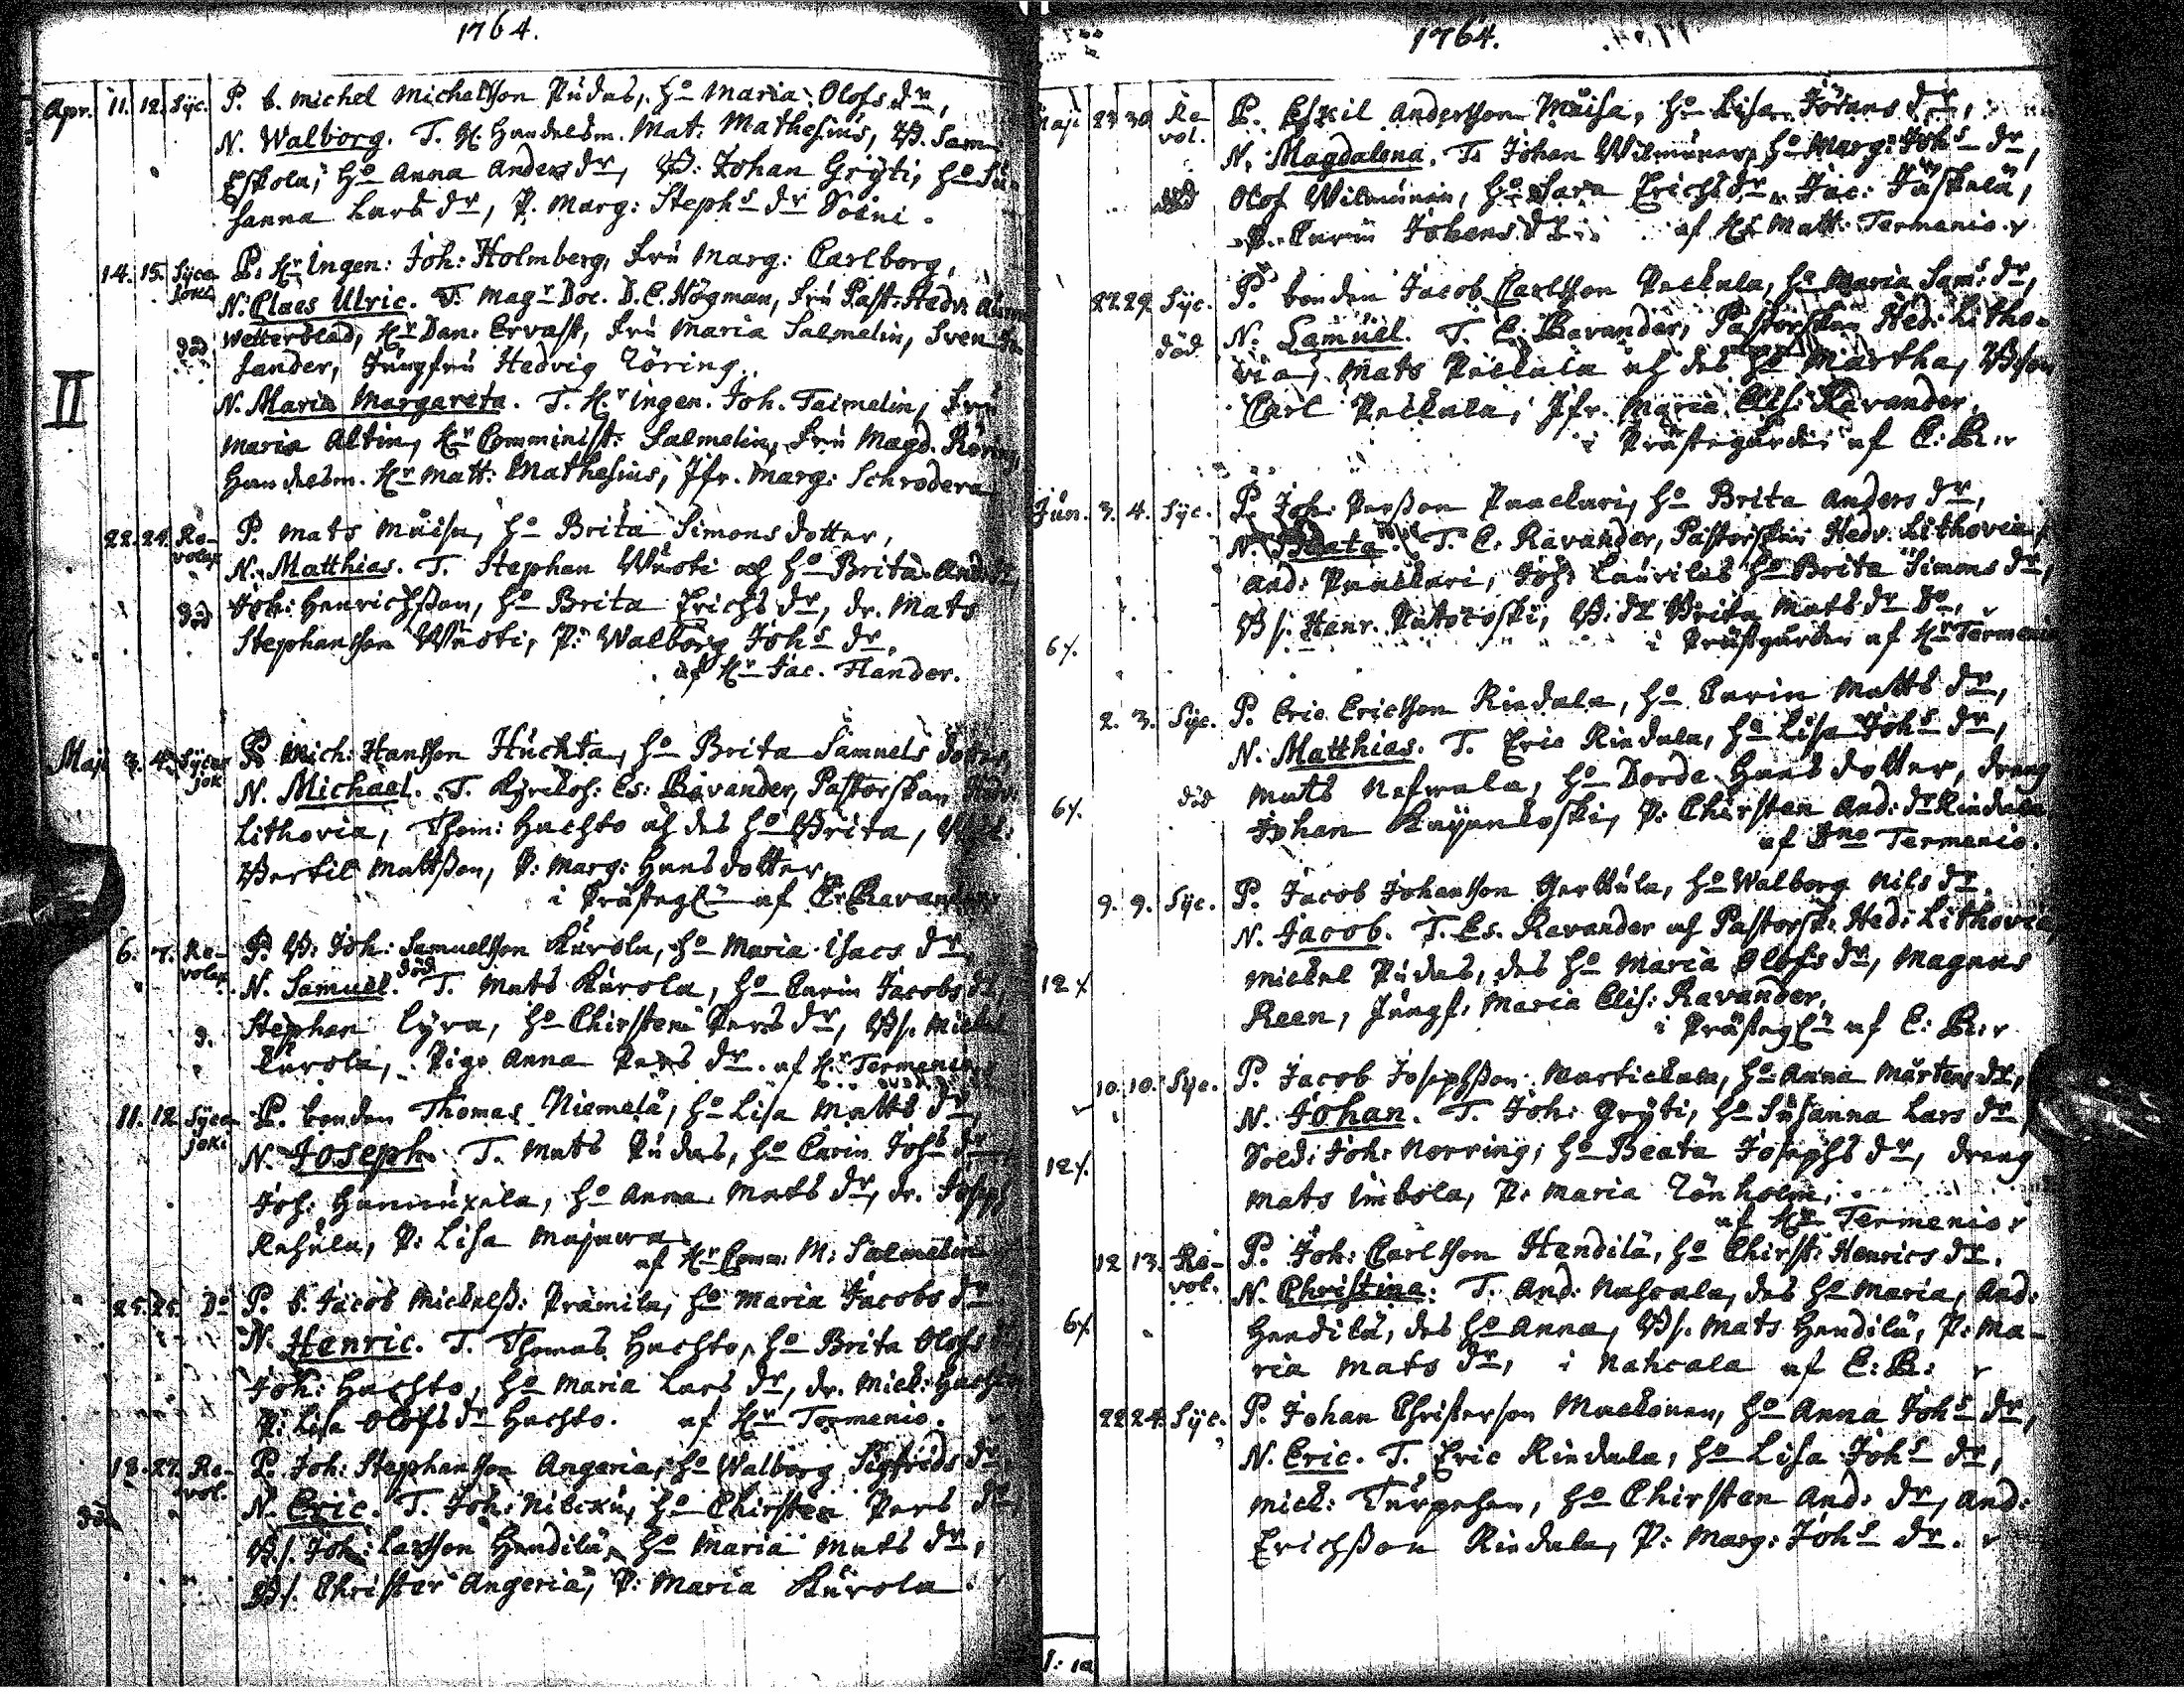 1764.
Apr. 11. 12. Syc. P. b. Michel Michelsson Pudas, ho Maria Olofs dr,
N. Walborg. T. H. Handelsm. Mat: Mathesius, B. Sam
Eskola, ho Anna Anders dr, B: Johan Gryti, ho Su-
sanna Lars dr, P. Marg: Steph s dr Soini.
14. 15. Syca P. Hr Ingen: Joh: Holmberg, Fru Marg: Carlborg,
joki N. Claes Ulric. T. Magr Doc. D. E. Högman, Fru Past: Hedv:
Wetterblad, Hr Dan. Ervast, Fru Maria Salmelin, Sven
död sander, Jungfru Hedvig Zöring.
II N. Maria Margareta. T. Hr Ingen. Joh. Taimelin, Fru
Maria Altin, Hr Comminist: Salmelin, Fru Magd. Röring,
Handelsm. Hr Matt: Mathesius, Jfr. Marg: Schrodera
22. 24. Re- P. Mats Muisa, ho Brita Simons dotter,
volax N. Matthias. T. Stephan Wuoti och ho Brita And:
död Joh: Henrichsson, ho Brita Erichs dr, dr. Mats
Stephansson Wuoti, P: Walborg Joh s dr.
af Hr Jac. Flander.
Maji 3. 4. Syca P. Mich: Hansson Huchta, ho Brita Samuels dotter
jok N. Michael. T. Kyrkoh: Es: Ravander, Pastorskan Hedv:
Lithovia, Thom: Huchto och des ho Brita,
Bertil Mattsson, P: Marg: Hans dotter
i Prästeg:n af E: Ravander
6. 7. Re- P. B: Joh: Samuelsson Kurola, ho Maria Isacs dr,
volax N. Samuel. död T. Mats Kurola, ho Carin Jacobs dr,
d. Stephan Lyra, ho Chirstin Pers dr, Bs. Mickel
Kurola, Piga Anna Pers dr. af Hr Termenio
11. 12 Syca P. bonden Thomas Niemelä, ho Lisa Matts dr,
joki N. Joseph. T. Mats Pudas, ho Carin Joh s dr
Joh: Hannuxela, ho Anna Mats dr, dr. Joseph
Rahula, P: Lisa Majawa
af Hr Comm: M: Salmelin
25. 25. Do P. b. Jacob Mickelss: Prámila, ho Maria Jacobs dr
N. Henric. T. Thomas Huchto, ho Brita Olofs
Joh: Huchto, ho Maria Lars dr, dr. Mick: Huchto
P: Lisa Olofs dr Huchto. af Hr Termenio.
18. 27. Re- P. Joh: Stephansson Angeria, ho Walborg Sigfrids dr
vol. N. Eric. T. Joh: Nilcku, ho Chirstin Pers dr
död Bs. Joh: Larsson Hendilä, ho Maria Mats dr,
Bs. Christer Angeria, P: Maria Kurola
1764.
Maji 23 30 Re P. Eskil Andersson Muisa, ho Lisa Jörans dr,
vol. N. Magdalena. T. Johan Wilmunen, ho Marg: Joh s dr,
död Olof Wilmunen, ho Sara Erichs dr, Jac: Jäskelä,
P. Carin Johans dr af Hr Matt: Termenio.
27. 29. Syc. P. bonden Jacob Carlsson Peckala, ho Maria Sam: dr,
död N. Samuel. T. E: Ravander, Pastorskan Hed: Litho-
via, Mats Peckala och des ho Martha, Bson
Carl Peckala, Jfr. Maria Elis: Ravander.
i Prästegården af E: R:
Jun. 3. 4. Syc. P. Joh: Persson Paackari, ho Brita Anders dr,
N. Beata. T. E: Ravander, Pastorskan Hedv. Lithovia,
And: Paackari, Joh: Laurilas ho Brita Simons dr,
Bs. Henr. Patocoski, B: dr Brita Mats dr
6 i Prästgården af Hr Termenio
2. 3. Syc. P. Eric Ericsson Rindala, ho Carin Matts dr,
N. Matthias. T. Eric Rindala, ho Lisa Joh s dr,
6 död Mats Nefwala, ho Dorde Hans dotter, dreng
Johan Kuyankoski, P: Chirstin And: dr Rindala
af Dno Termenio.
9. 9. Syc. P. Jacob Johansson Gerttula, ho Walborg Nils dr.
N. Jacob. T. Es. Ravander och Pastorsk: Hed: Lithovia,
12 Mickel Pudas, des ho Maria Olofs dr, Magnus
Reen, Jungf. Maria Elis: Ravander,
i Prästeg:n af E: R:
10. 10. Syc. P. Jacob Josephsson Martickala, ho Anna Mårtens dr,
N. Johan. T. Joh: Gryti, ho Susanna Lars dr
12 Sold: Joh: Norring, ho Beata Josephs dr, dreng
Mats Imbola, P: Maria Zönholm,
af Hr Termenio
12 13. Re- P. Joh: Carlsson Hendilä, ho Chirst: Henrics dr.
vol. N. Christina. T. And: Nahcala, des ho Maria, And:
6 Hendilä, des ho Anna, Bs. Mats Hendilä, P: Ma-
ria Mats dr, i Nahcala af E: R:
22 24. Syc. P. Johan Christerson Muckonen, ho Anna Joh s dr,
N. Eric. T. Eric Rindala, ho Lisa Joh s dr,
Mick: Turpehen, ho Chirstin And: dr, And:
Erichsson Rindala, P: Marg: Joh s dr.